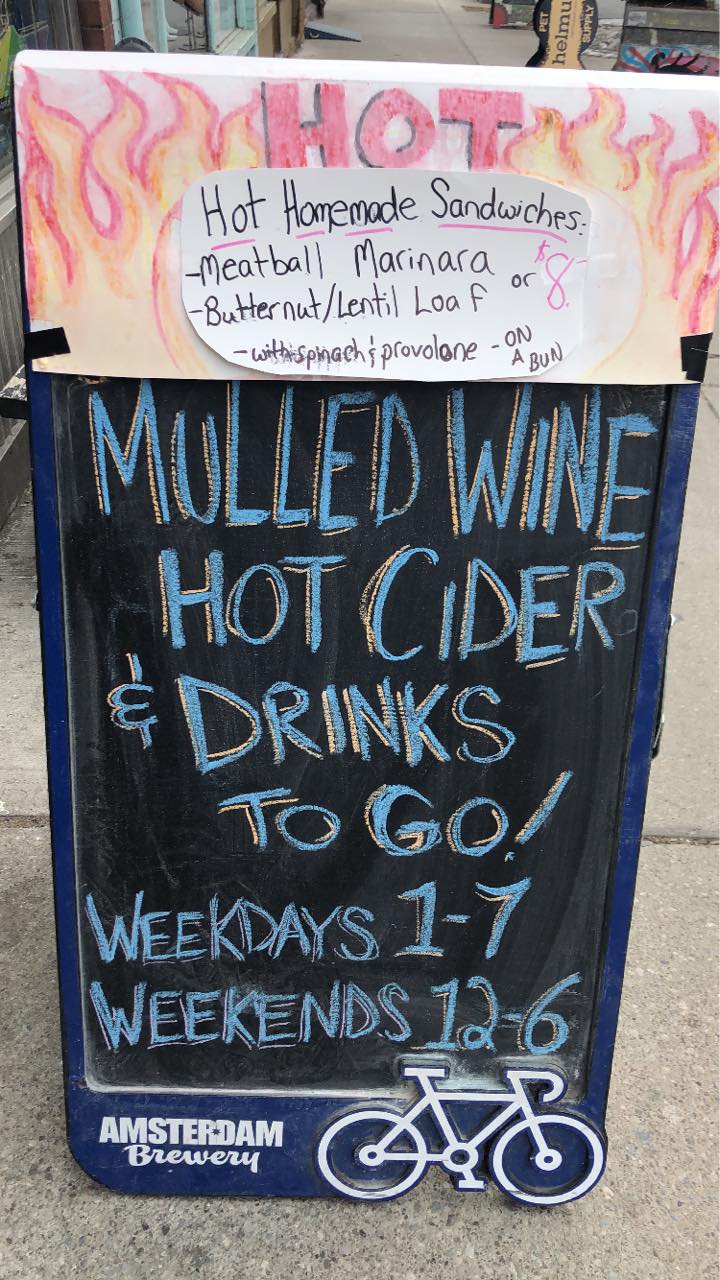 PET
helmu
SUPPLY
HOT
Hot Homemade Sandwiches:
-Meatball Marinara
or $8.
-Butternut/Lentil Loaf
-with spinach & provolone - ON A BUN
MULLED WINE
HOT CIDER
& DRINKS
TO GO!
WEEKDAYS 1-7
WEEKENDS 12-6
AMSTERDAM
Brewery